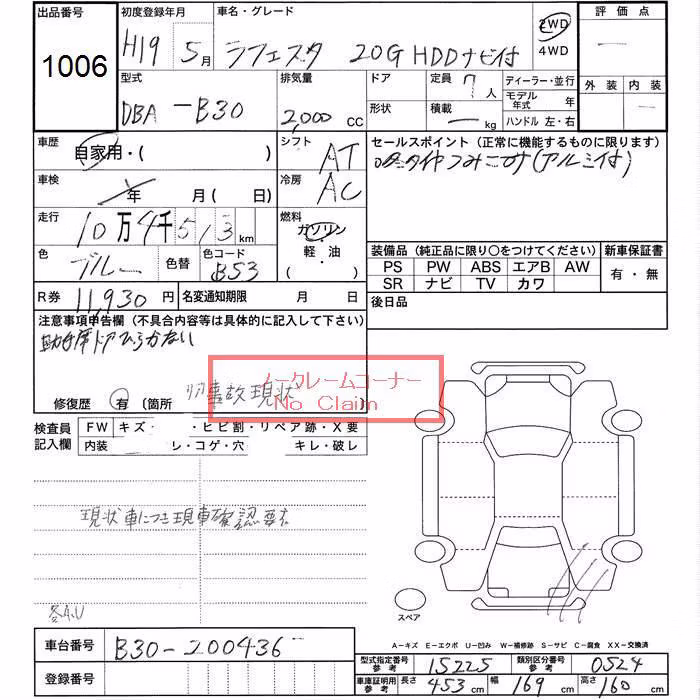 出品番号 初度登録年月 車名・グレード 2WD 4WD 評価点
1006 H19年 5月 ラフェスタ 20G HDDナビ付 一
型式 排気量 ドア 定員 7人 ディーラー・並行 外装 内装
DBA-B30 2,000 CC 形状 積載 一 kg モデル年式 年 一
ハンドル 左・右
車歴 自家用・( ) シフト AT セールスポイント (正常に機能するものに限ります)
(アルミ付)
車検 年 月(日) 冷房 AC
走行 10万4千513km 燃料 ガソリン 軽・油 ( )
装備品 (純正品に限り〇をつけてください) 新車保証書
色 ブルー 色替 色コード B53
PS PW ABS エアB AW 有・無
SR ナビ TV カワ
R券 11,930円 名変通知期限 月 日 後日品
注意事項申告欄 (不具合内容等は具体的に記入して下さい)
助手席ドアひらかない
ノークレームコーナー
No Claim
修復歴 有 (箇所 事故現状 )
検査員記入欄 FW キズ・ ・ヒビ割・リペア跡・X要
内装 レ・コゲ・穴 キレ・破レ
現状車につき現車確認要す
スペア
A-キズ E-エクボ U-凹み W-補修跡 S-サビ C-腐食 XX-交換済
車台番号 B30-200436
型式指定番号参考 15225 類別区分番号参考 0524
登録番号
車庫証明用参考 長さ 453cm 幅 169cm 高さ 160cm